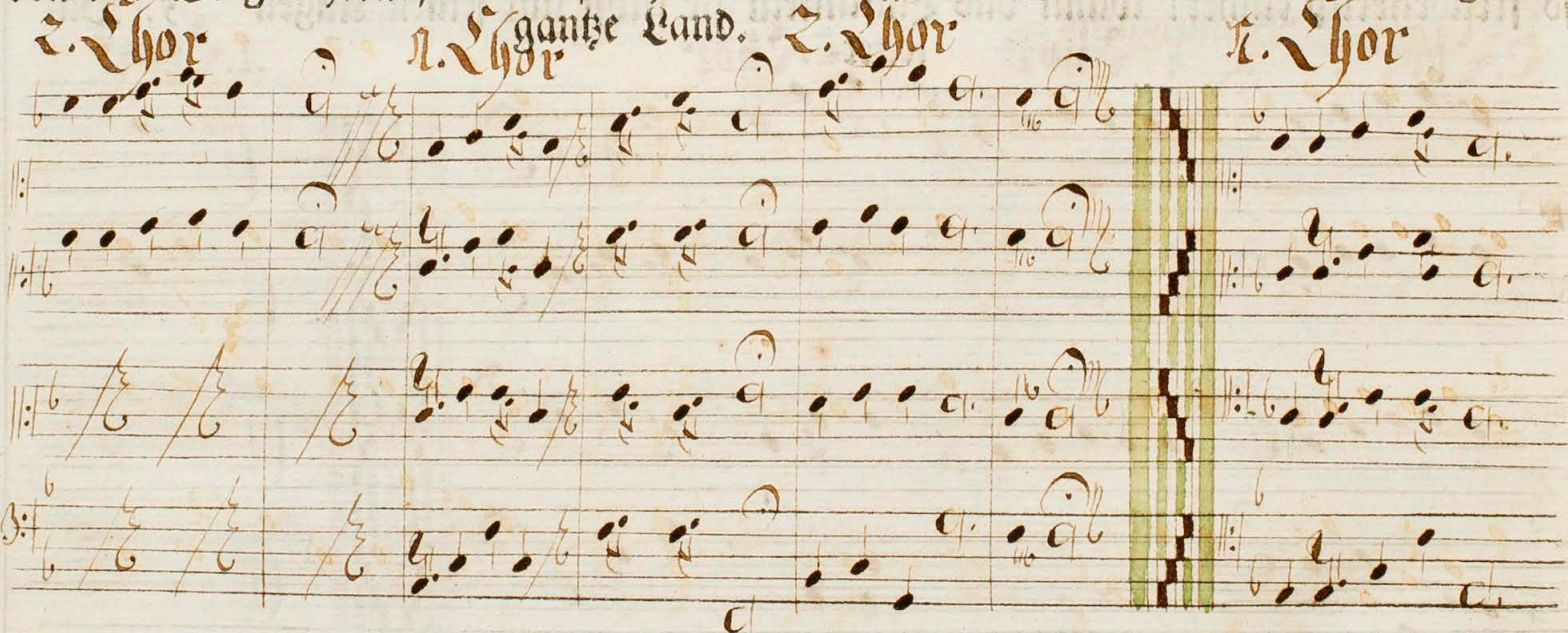 2. Chor 1. Chor gantze Land. 2. Chor 1. Chor